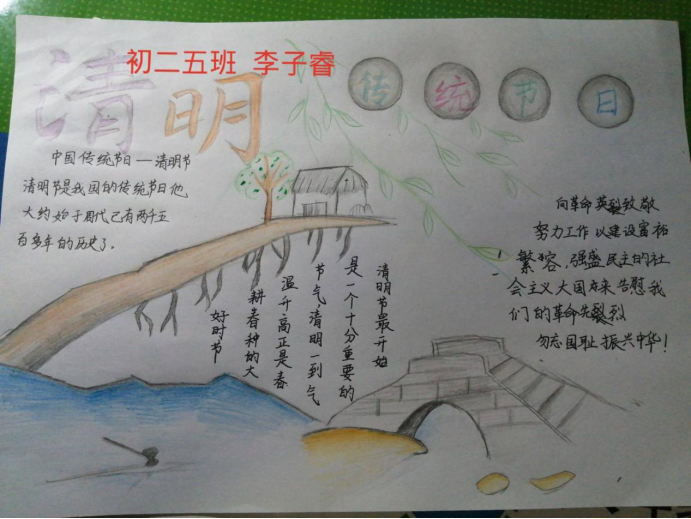 初二五班 李子睿
清明
传统节日
中国传统节日——清明节
清明节是我国的传统节日他
大约始于周代已有两千五
百多年的历史了。
清明节最开始
是一个十分重要的
节气，清明一到气
温升高正是春
耕春种的大
好时节
向革命英烈致敬
努力工作以建设富裕
繁容，强盛民主的社
会主义大国来告慰我
们的革命先烈
勿忘国耻振兴中华！